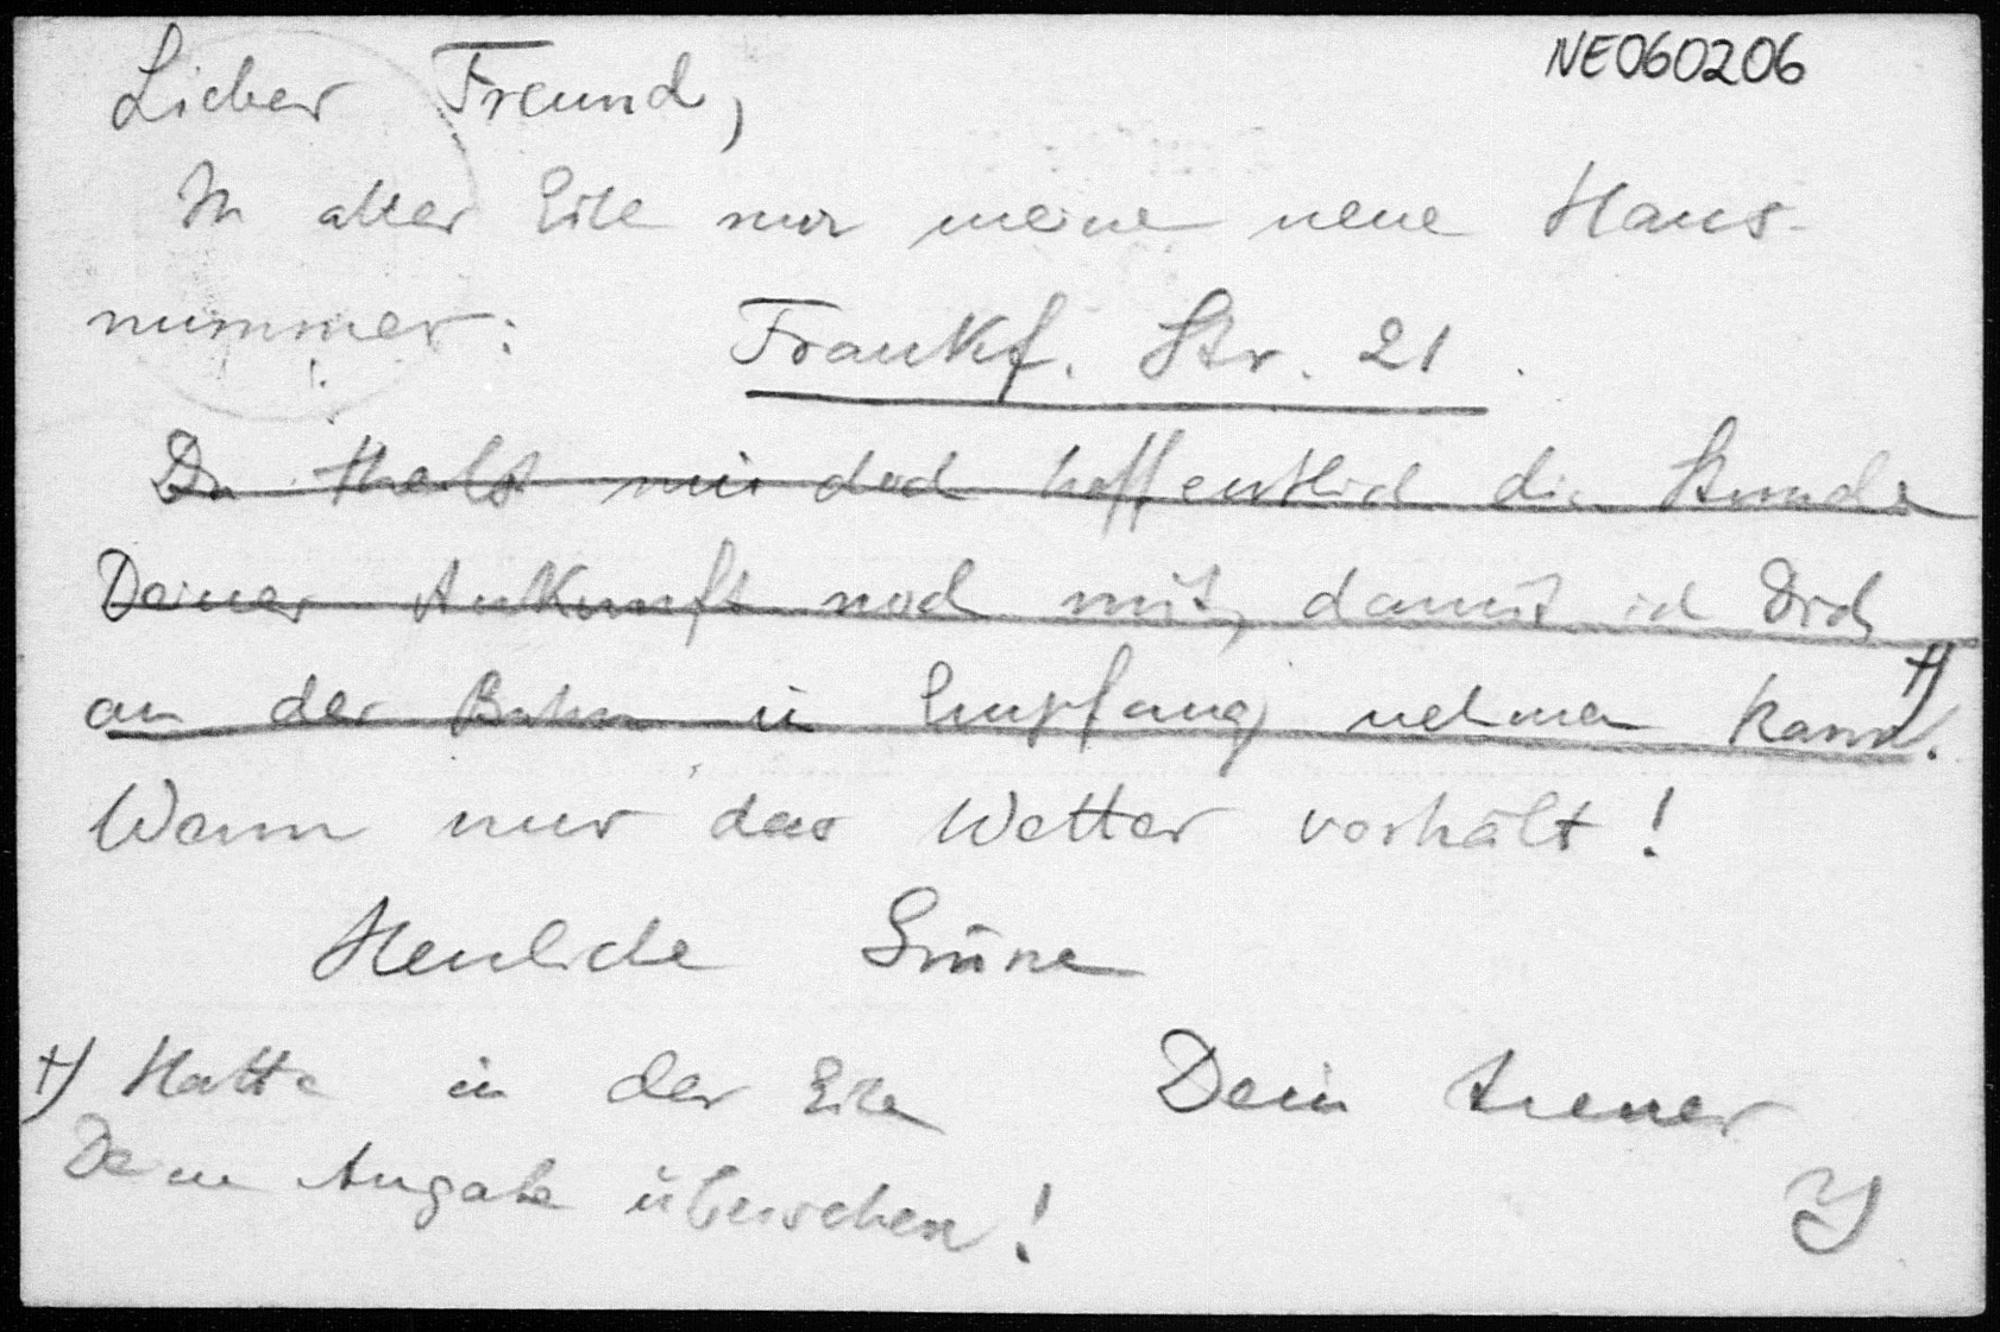 NE060206
Lieber Freund,
In aller Eile nur meine neue Haus-
nummer:
Frankf. Str. 21.
Du theilst mir doch hoffentlich die Stunde
Deiner Ankunft noch mit, damit ich Dich
an der Bahn in Empfang nehmen kann +).
Wenn nur das Wetter vorhält!
Herzliche Grüsse
Dein treuer
+) Hatte in der Eile
Deine Angabe übersehen!